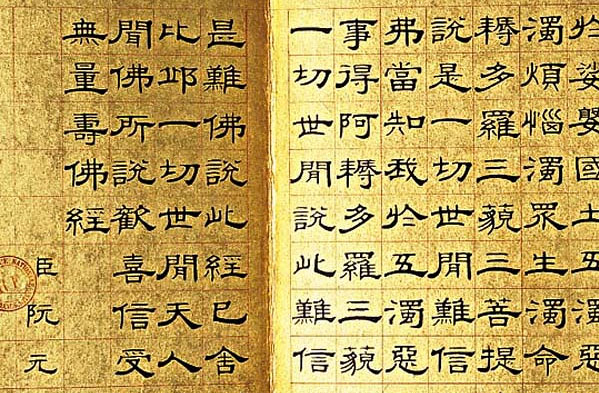 於娑婆國土五濁惡
濁煩惱濁眾生濁命
耨多羅三藐三菩提
說是一切世間難信
弗當知我於五濁惡
事得阿耨多羅三藐
一切世間說此難信
是難佛說此經已舍
比邱一切世間天人
聞佛所說歡喜信受
無量壽佛經
臣阮元